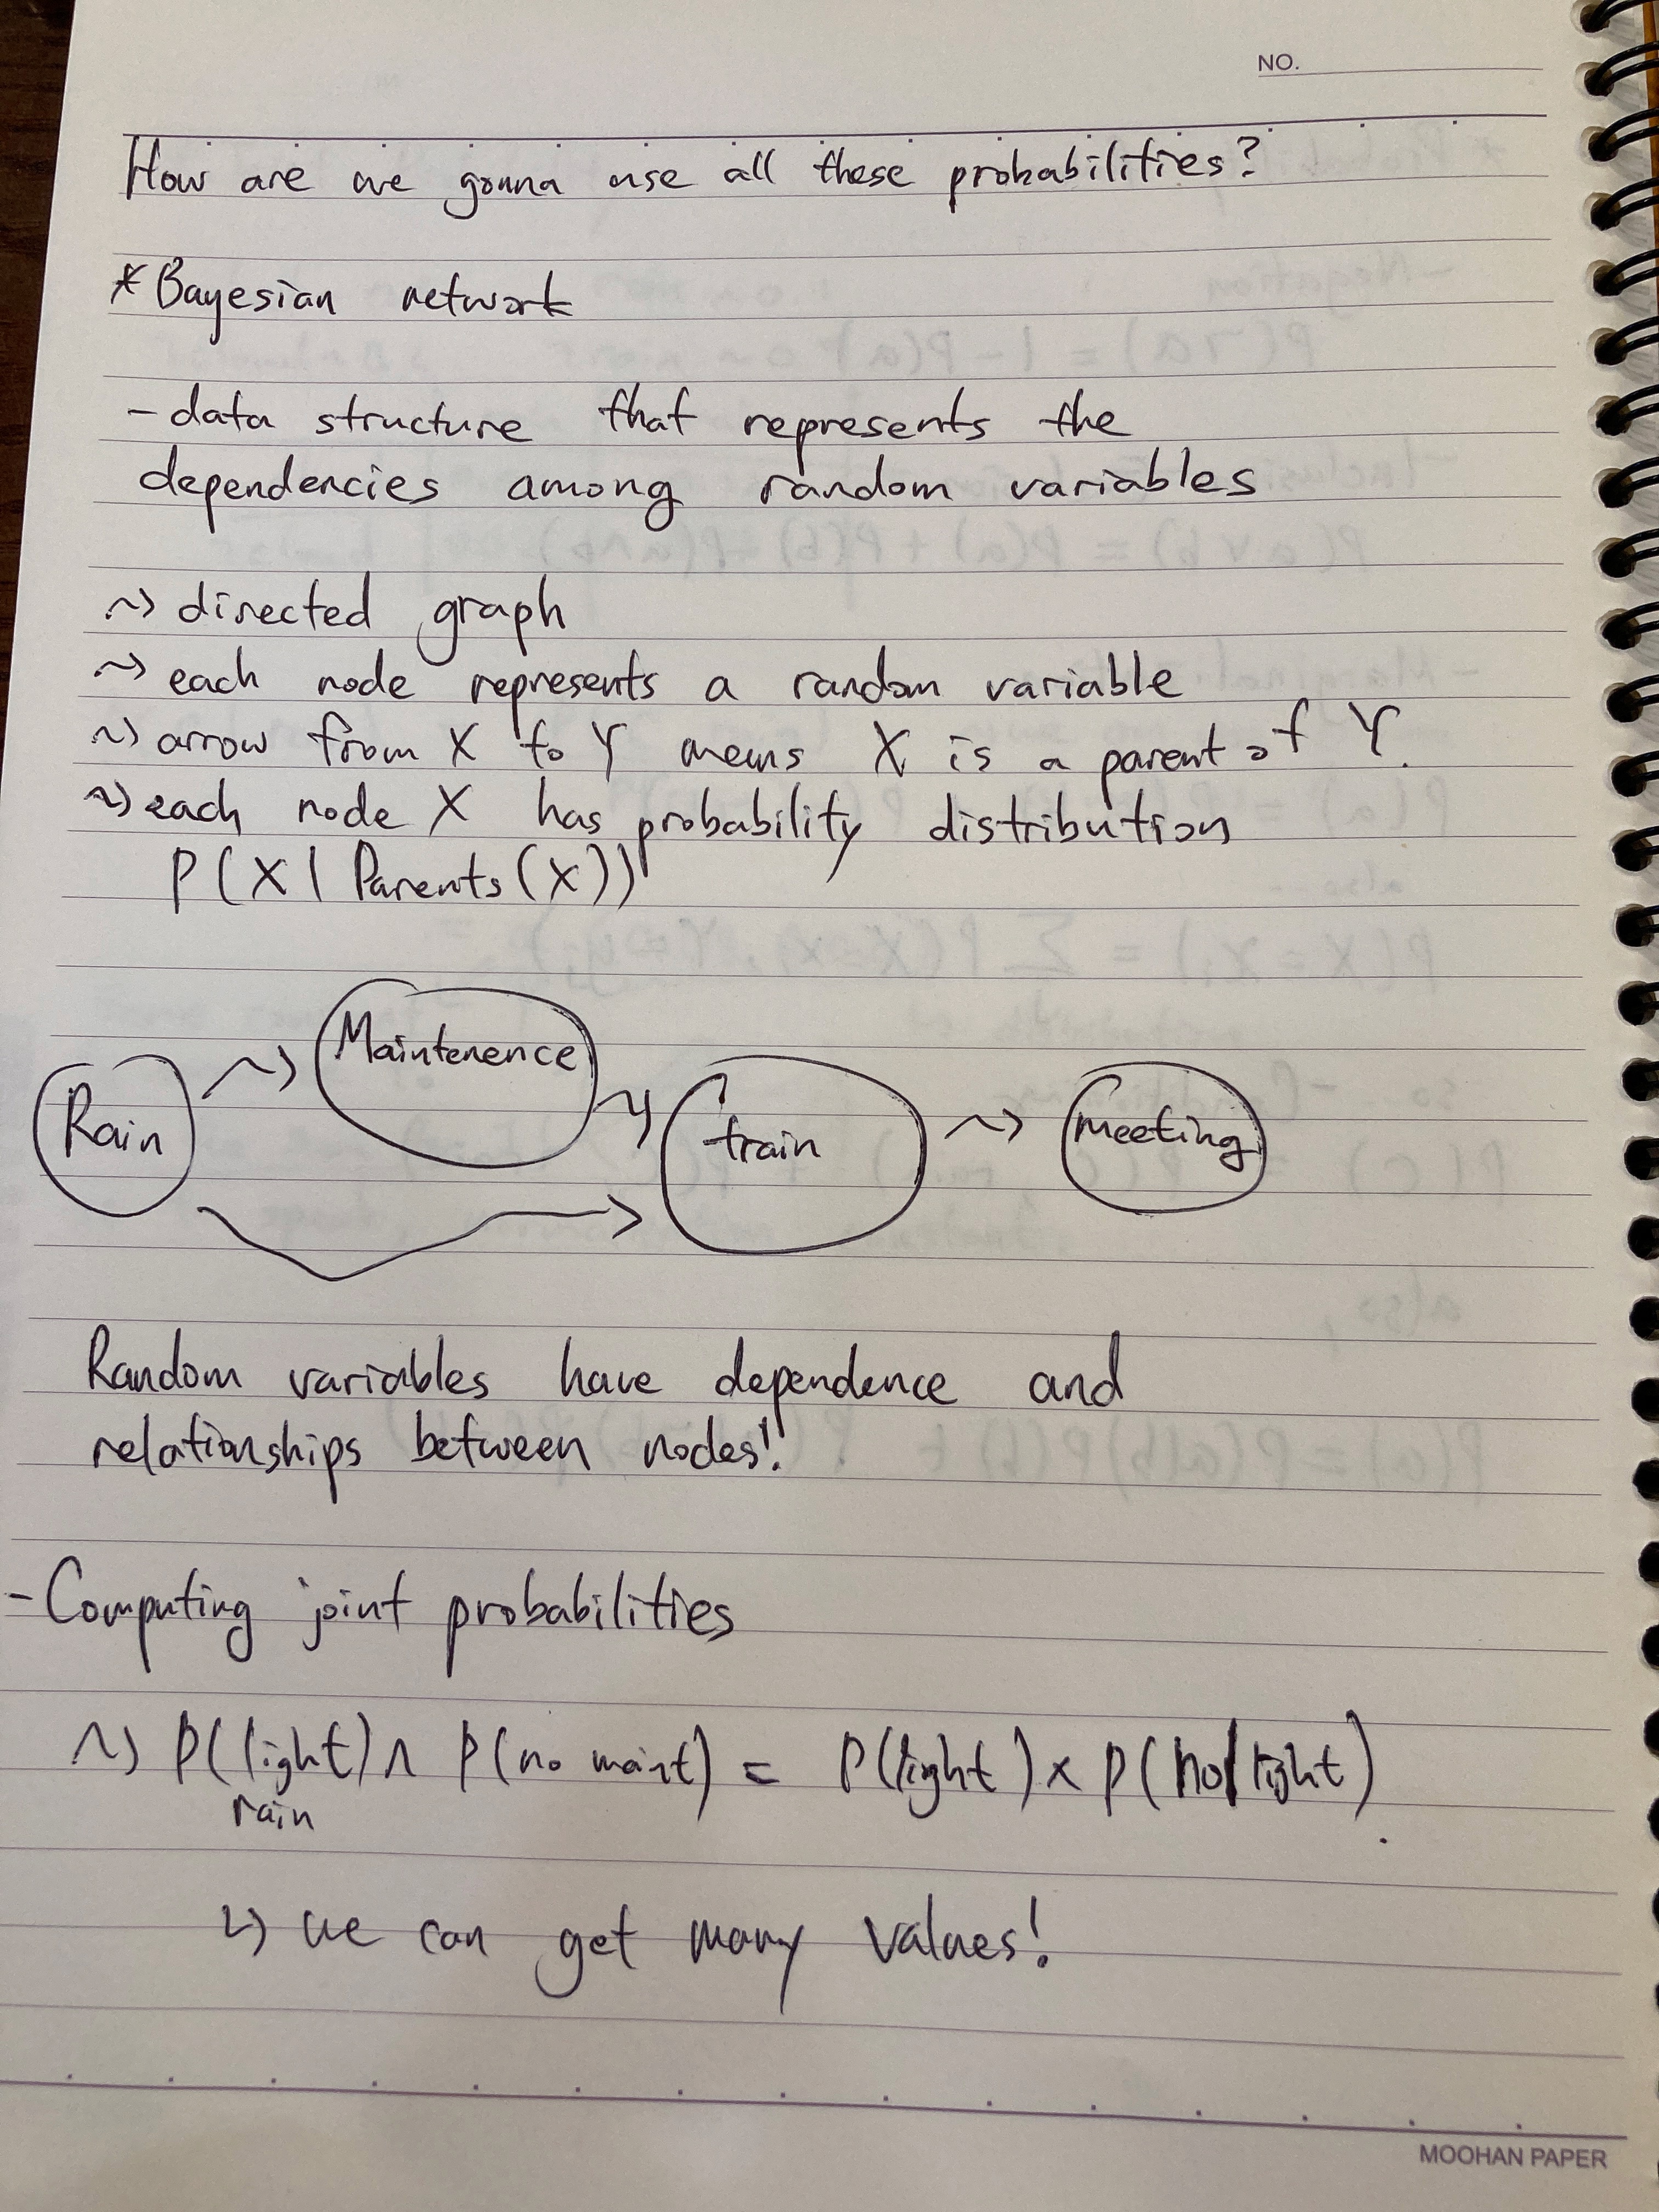 NO.
How are we gonna use all these probabilities?
* Bayesian network
- data structure that represents the
dependencies among random variables
~> directed graph
~> each node represents a random variable
~> arrow from X to Y means X is a parent of Y.
~> each node X has probability distribution
P(X | Parents(X))
Rain ~> Maintenence ~> train ~> meeting
Random variables have dependence and
relationships between nodes!!
- Computing joint probabilities
~> P(light) ∧ P(no maint) = P(light) × P(no | light).
rain
↳) we can get many values!
MOOHAN PAPER